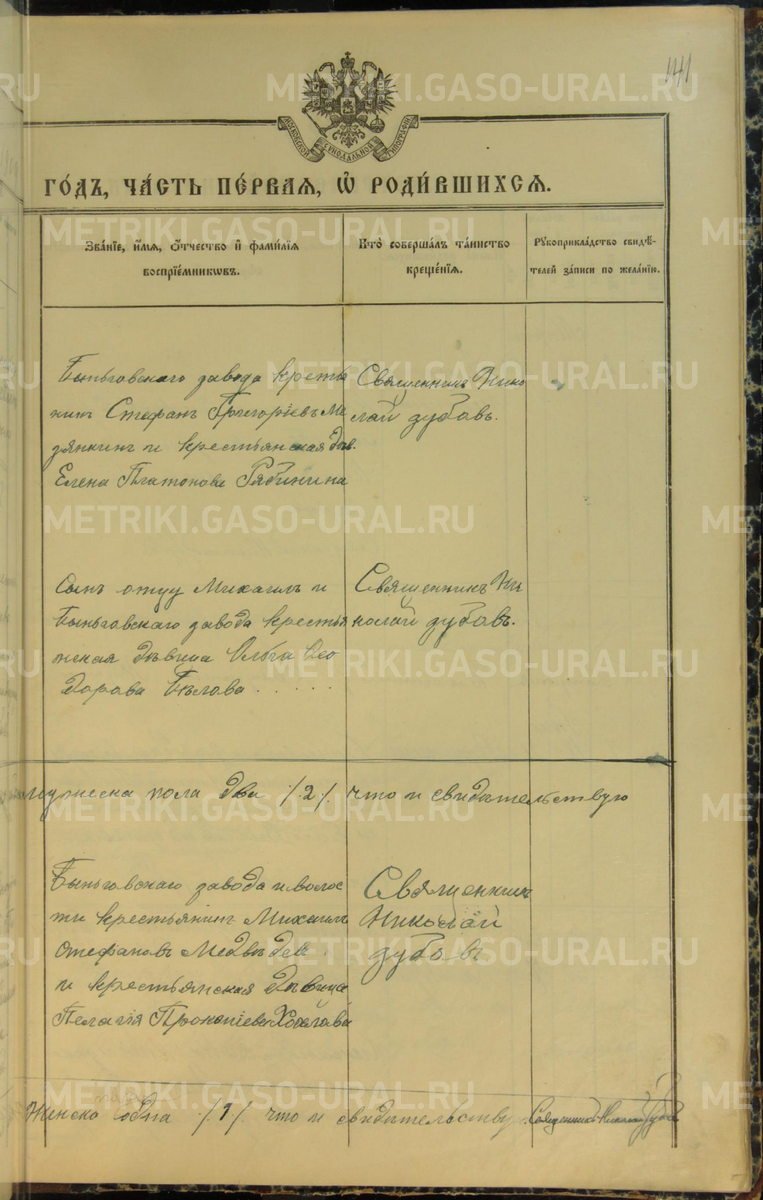 141
МОСКОВСКОЙ СѴНОДАЛЬНОЙ ТИПОГРАФІИ
ГО́ДЪ, ЧА́СТЬ ПЕ́РВАЯ, Ѽ РОДИ́ВШИХСЯ.
Зва́нїе, и҆́мя, ѻ҆́тчество и҆ фамі́лїя воспрїе́мникѡвъ.
Кто̀ соверша́лъ та́инство креще́нїя.
Рꙋкоприкла́дство свидѣ́телей за́писи по жела́нїю.
Быньговскаго завода крестья
нин Стефан Григорiевъ Ме
дянкинъ и крестьянская дѣв.
Елена Платонова Рябинина
Священникъ Нико
лай Дубавъ.
Сынъ отцу Михаилъ и
Быньговскаго завода крестья
нская дѣвица Ольга Ѳео
дарава Бѣлава . . . . . .
Священникъ Ни
колай Дубавъ.
мужеска пола два /.2/. что и свидѣтельствую
Быньговскаго завода и волос
ти крестьянинъ Михаилъ
Стефановъ Медвѣдев
и крестьянская дѣвица
Пелагія Прокопіева
Священникъ
Николай
Дубавъ
Женска одна /1/. что и свидѣтельствую Священникъ Николай Дубавъ
METRIKI.GASO-URAL.RU